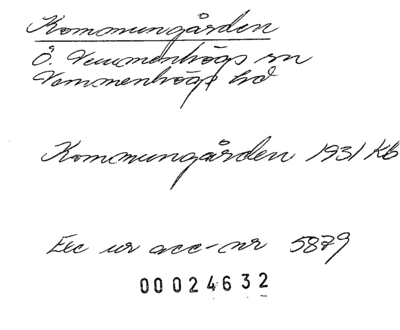 Kommungården
Ö. Vemmenhögs sn
Vemmenhögs hd
Kommungården 1931 Kb
Exc ur acc-nr 5879
00024632